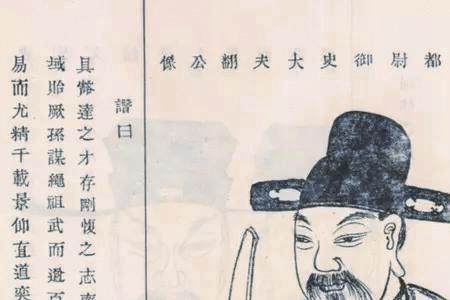 都尉御史大夫翻公像
曰
具達之才存剛愎之志
域貽厥孫謀繩祖武而百
易而尤精千載景仰直道奕